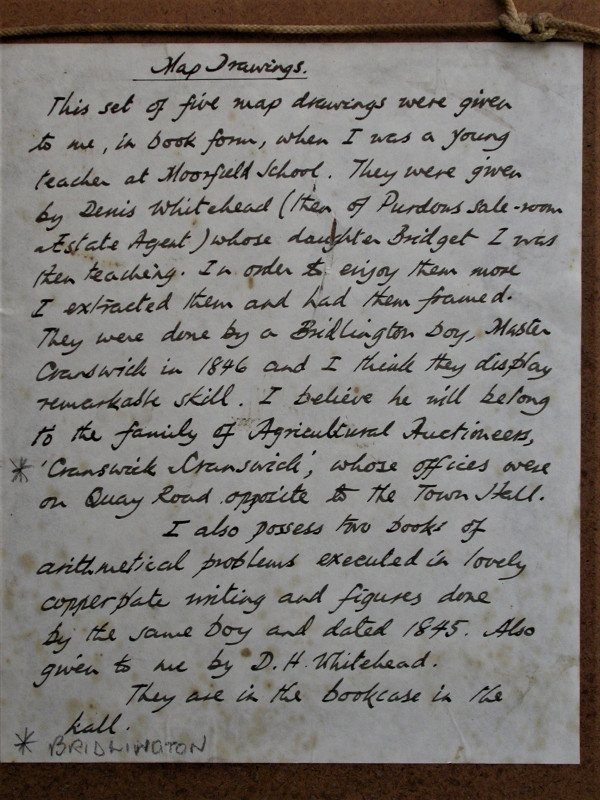 Map Drawings.
This set of five map drawings were given
to me, in book form, when I was a young
teacher at Moorfield School. They were given
by Denis Whitehead (then of Purdons Sale-room
& Estate Agent) whose daughter Bridget I was
then teaching. In order to enjoy them more
I extracted them and had them framed.
They were done by a Bridlington boy, Master
Cranswick in 1846 and I think they display
remarkable skill. I believe he will belong
to the family of Agricultural Auctioneers,
* 'Cranswick & Cranswick', whose offices were
on Quay Road opposite to the Town Hall.
I also possess two books of
arithmetical problems execued in lovely
copperplate writing and figures done
by the same boy and dated 1845. Also
given to me by D.H. Whitehead.
They are in the bookcase in the
hall.
* BRIDLINGTON